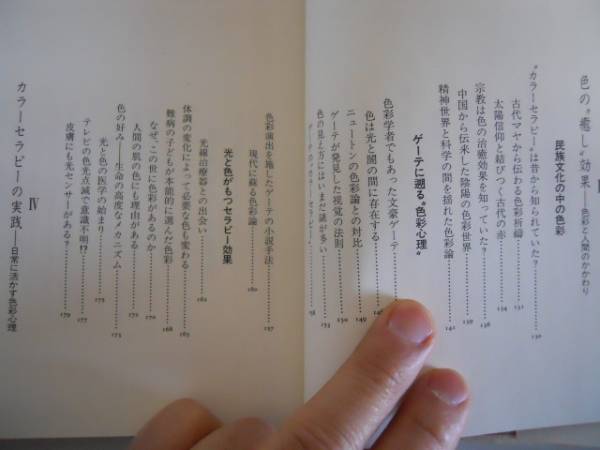 色の〝癒し〟効果——色彩と人間のかかわり
民族文化の中の色彩
〝カラーセラピー〟は昔から知られていた? 130
古代マヤから伝わる色彩祈禱 131
太陽信仰と結びつく古代の赤 134
宗教は色の治癒効果を知っていた? 136
中国から伝来した陰陽の色彩世界 139
精神世界と科学の間を揺れた色彩論 141
ゲーテに遡る〝色彩心理〟
色彩学者でもあった文豪ゲーテ
色は光と闇の間に存在する
ニュートンの色彩論との対比 149
ゲーテが発見した視覚の法則 150
色の見え方にはいまだ謎が多い 153
色彩演出を施したゲーテの小説手法 157
現代に蘇る色彩論 160
光と色がもつセラピー効果
光線治療器との出会い 162
体調の変化によって必要な色も変わる 165
難病の子どもが本能的に選んだ色彩 168
なぜ、この世に色彩があるのか 170
人間の肌の色にも理由がある 172
色の好み——生命の高度なメカニズム 173
光と色の医学の始まり 175
テレビの色光点滅で意識不明!? 177
皮膚にも光センサーがある? 179
Ⅳ
カラーセラピーの実践——日常に活かす色彩心理